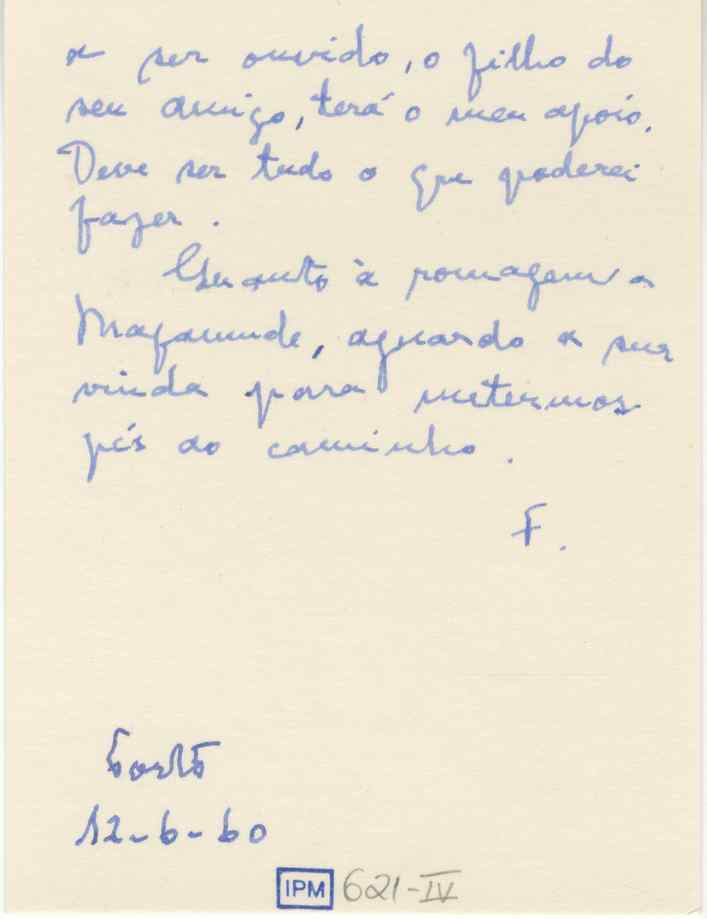 a ser ouvido, o filho do
seu amigo, terá o meu apoio.
Deve ser tudo o que poderei
fazer.
Quanto à romagem a
Mafamude, aguardo a sua
vinda para metermos
pés ao caminho.
F.
Porto
12-6-60
IPM 621-IV